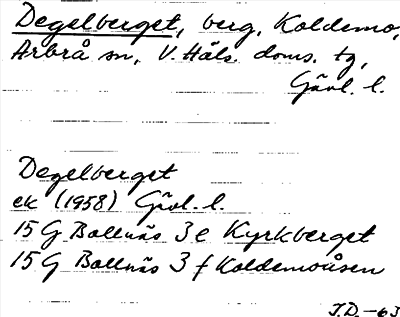 Degelberget, berg, Koldemo,
Arbrå sn, V. Häls. doms. tg,
Gävl. l.
Degelberget
ek (1958) Gävl. l.
15 G Bollnäs 3 e Kyrkberget
15 G Bollnäs 3 f Koldemoåsen
J.D. -63